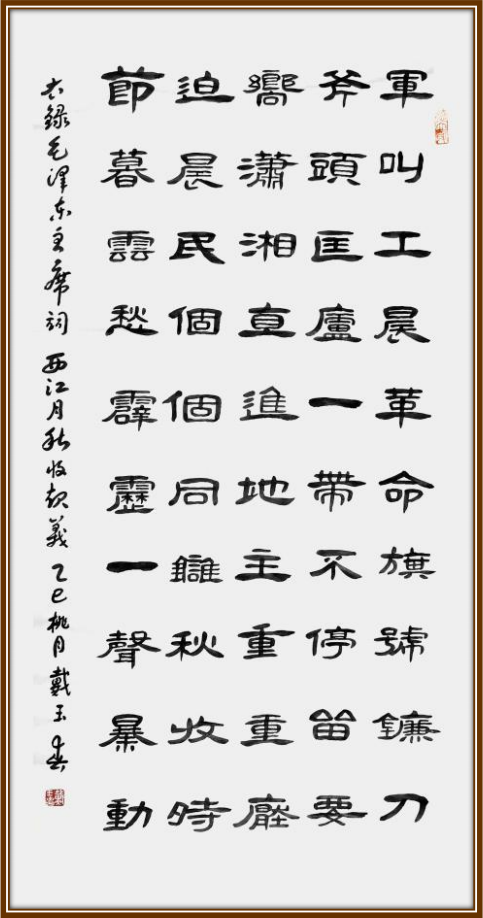 軍叫工農革命旗號鐮刀
斧頭匡廬一帶不停留要
嚮瀟湘直進地主重重壓
迫農民個個同讎秋收時
節暮雲愁霹靂一聲暴動
右録毛澤东主席詞 西江月秋收起義 乙巳桃月戴玉春